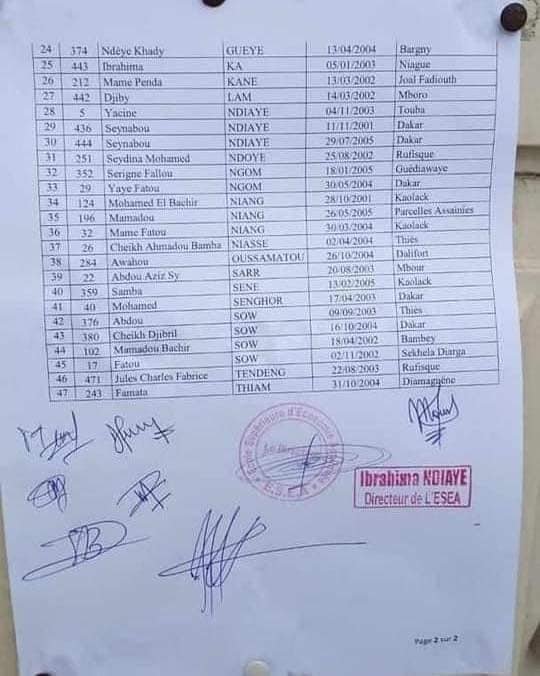 24 374 Ndèye Khady GUEYE 13/04/2004 Bargny
25 443 Ibrahima KA 05/01/2003 Niague
26 212 Mame Penda KANE 13/03/2002 Joal Fadiouth
27 442 Djiby LAM 14/03/2002 Mboro
28 5 Yacine NDIAYE 04/11/2003 Touba
29 436 Seynabou NDIAYE 11/11/2001 Dakar
30 444 Seynabou NDIAYE 29/07/2005 Dakar
31 251 Seydina Mohamed NDOYE 25/08/2002 Rufisque
32 352 Serigne Fallou NGOM 18/01/2005 Guédiawaye
33 29 Yaye Fatou NGOM 30/05/2004 Dakar
34 124 Mohamed El Bachir NIANG 28/10/2001 Kaolack
35 196 Mamadou NIANG 26/05/2005 Parcelles Assainies
36 32 Mame Fatou NIANG 30/03/2004 Kaolack
37 26 Cheikh Ahmadou Bamba NIASSE 02/04/2004 Thiès
38 284 Awahou OUSSAMATOU 26/10/2004 Dalifort
39 22 Abdou Aziz Sy SARR 20/08/2003 Mbour
40 359 Samba SENE 13/02/2005 Kaolack
41 40 Mohamed SENGHOR 17/04/2003 Dakar
42 376 Abdou SOW 09/09/2003 Thiès
43 380 Cheikh Djibril SOW 16/10/2004 Dakar
44 102 Mamadou Bachir SOW 18/04/2002 Bambey
45 17 Fatou SOW 02/11/2002 Sekhela Diarga
46 471 Jules Charles Fabrice TENDENG 22/08/2003 Rufisque
47 243 Famata THIAM 31/10/2004 Diamaguène
Ecole Supérieure d'Economie
E.S.E.A
Ibrahima NDIAYE
Directeur de L'ESEA
Page 2 sur 2